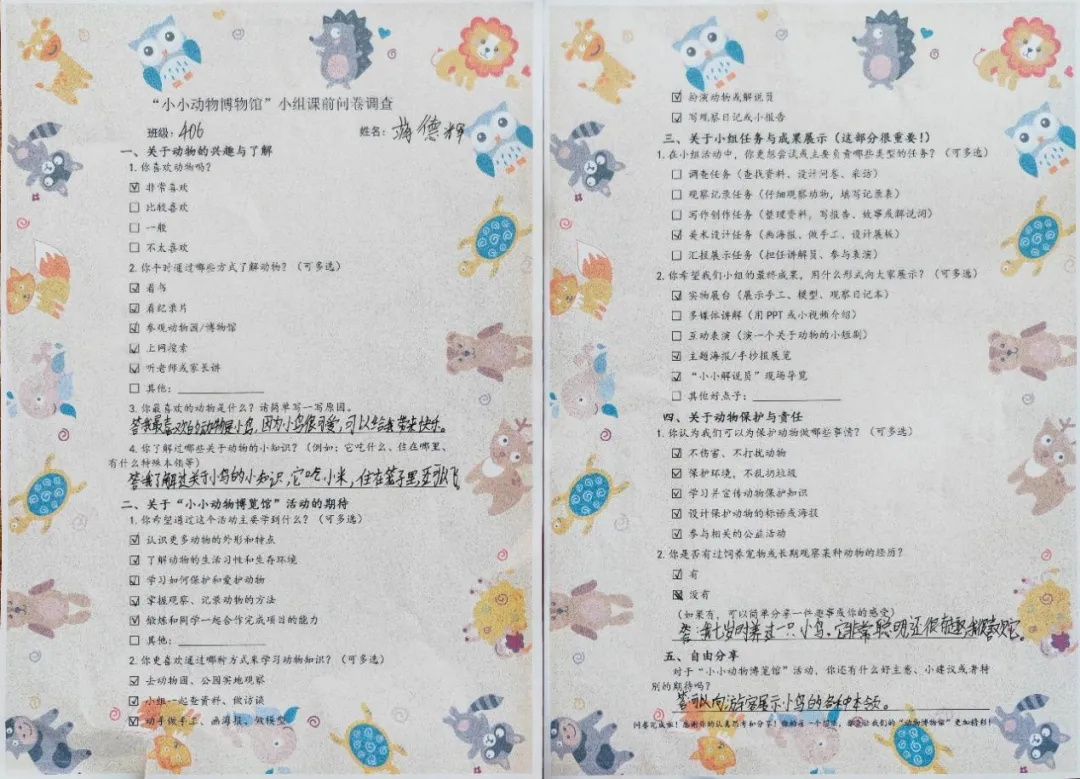 “小小动物博物馆”小组课前问卷调查
班级：406 姓名：游德辉
一、关于动物的兴趣与了解
1. 你喜欢动物吗？
☑ 非常喜欢
☐ 比较喜欢
☐ 一般
☐ 不太喜欢
2. 你平时通过哪些方式了解动物？（可多选）
☑ 看书
☑ 看纪录片
☑ 参观动物园/博物馆
☑ 上网搜索
☑ 听老师或家长讲
☐ 其他：
3. 你最喜欢的动物是什么？请简单写一写原因。
答我最喜欢的动物是小鸟，因为小鸟很可爱，可以给我带来快乐。
4. 你了解过哪些关于动物的小知识？（例如：它吃什么、住在哪里、
有什么特殊本领等）
答我了解过关于小鸟的小知识，它吃小米，住在笼子里，还会飞
二、关于“小小动物博览馆”活动的期待
1. 你希望通过这个活动主要学到什么？（可多选）
☑ 认识更多动物的外形和特点
☑ 了解动物的生活习性和生存环境
☑ 学习如何保护和爱护动物
☑ 掌握观察、记录动物的方法
☑ 锻炼和同学一起合作完成项目的能力
☐ 其他：
2. 你更喜欢通过哪种方式来学习动物知识？（可多选）
☑ 去动物园、公园实地观察
☑ 小组一起查资料、做访谈
☑ 动手做手工、画海报、做模型
☑ 扮演动物或解说员
☑ 写观察日记或小报告
三、关于小组任务与成果展示（这部分很重要！）
1. 在小组活动中，你更想尝试或主要负责哪些类型的任务？（可多选）
☐ 调查任务（查找资料、设计问卷、采访）
☐ 观察记录任务（仔细观察动物，填写记录表）
☐ 写作创作任务（整理资料，写报告、故事或解说词）
☑ 美术设计任务（画海报、做手工、设计展板）
☐ 汇报展示任务（担任讲解员、参与表演）
2. 你希望我们小组的最终成果，用什么形式向大家展示？（可多选）
☑ 实物展台（展示手工、模型、观察日记本）
☐ 多媒体讲解（用 PPT 或小视频介绍）
☐ 互动表演（演一个关于动物的小短剧）
☑ 主题海报/手抄报展览
☑ “小小解说员”现场导览
☐ 其他好点子：
四、关于动物保护与责任
1. 你认为我们可以为保护动物做哪些事情？（可多选）
☑ 不伤害、不打扰动物
☑ 保护环境，不乱扔垃圾
☑ 学习并宣传动物保护知识
☑ 设计保护动物的标语或海报
☑ 参与相关的公益活动
2. 你是否有过饲养宠物或长期观察某种动物的经历？
☑ 有
没有
（如果有，可以简单分享一件趣事或你的感受）
答：我七岁时养过一只小鸟。它非常聪明，还很，我很喜欢它。
五、自由分享
对于“小小动物博览馆”活动，你还有什么好主意、小建议或者特
别的期待吗？
答可以向游客展示小鸟的各种本领。
问卷完成啦！感谢你的认真思考和分享！你的每一个想法，都会让我们的“动物博物馆”更加精彩！